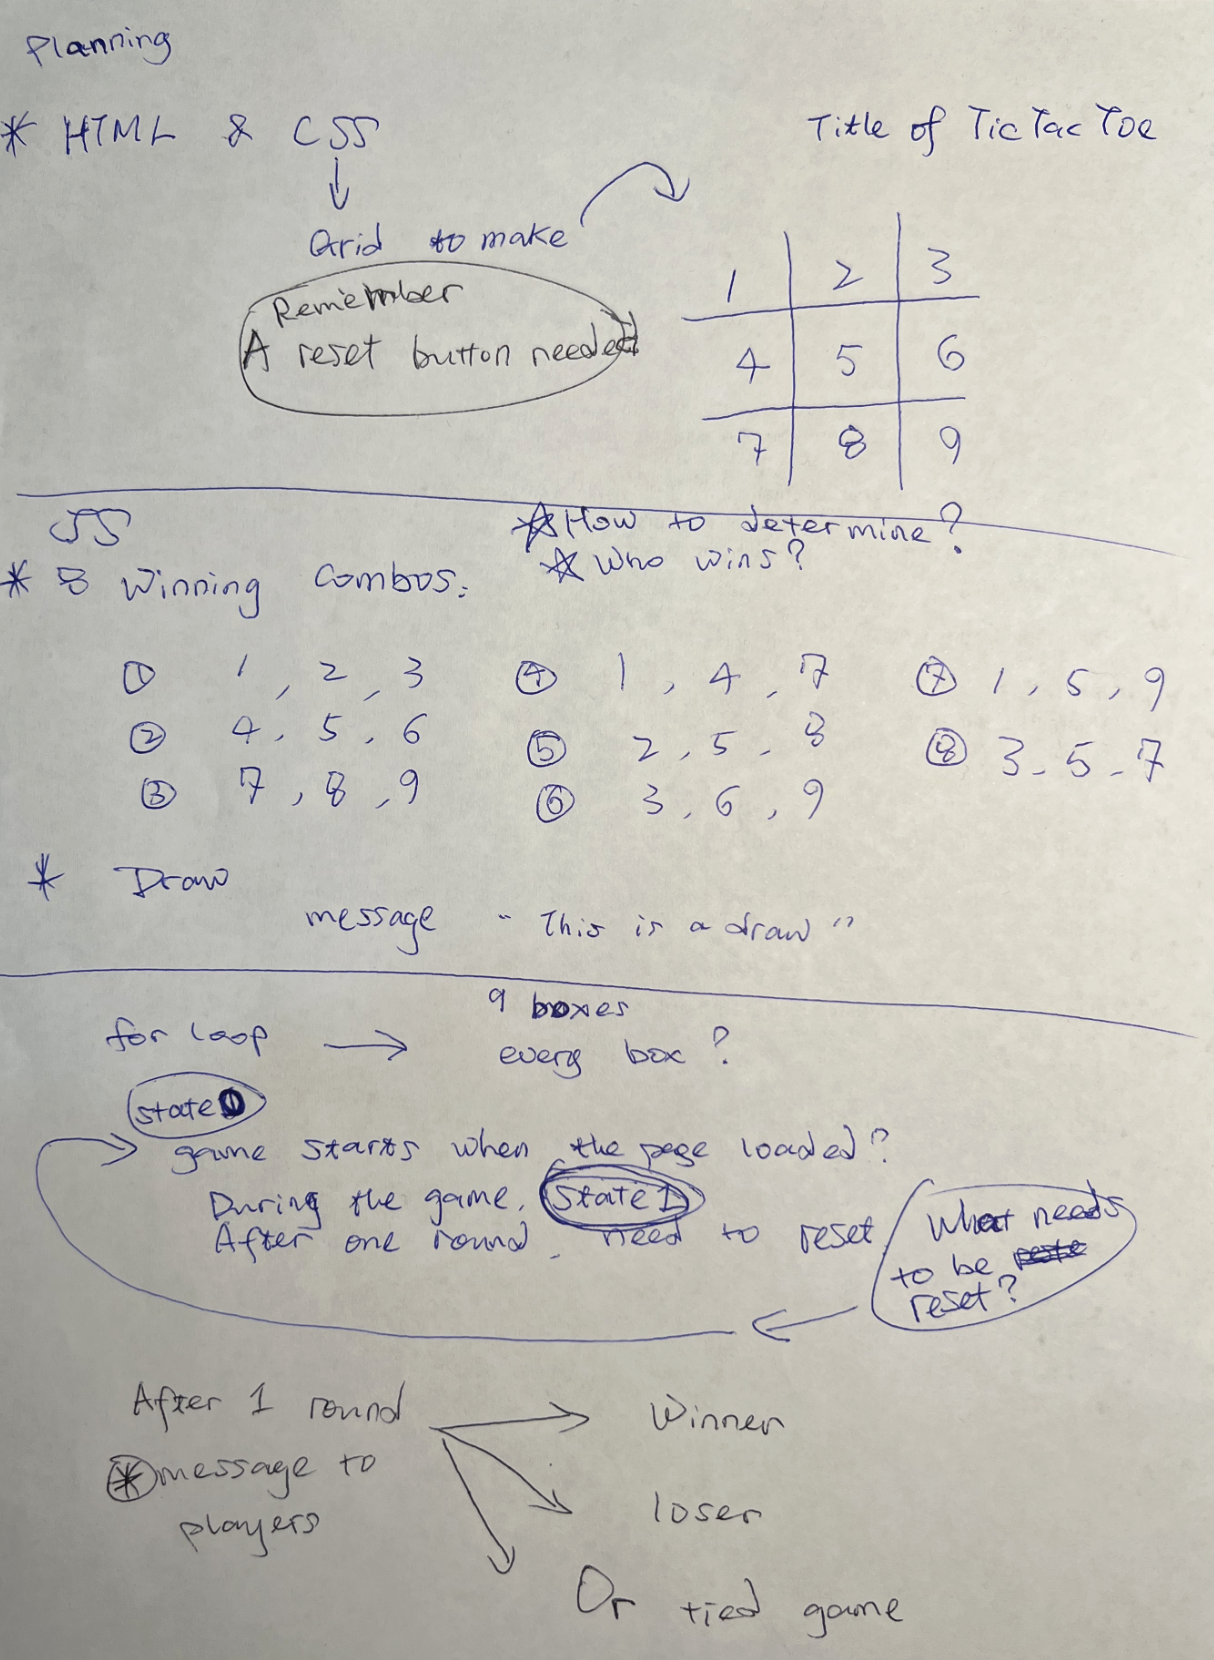 Planning
* HTML & CSS
Title of Tic Tac Toe
Grid to make
Remember
A reset button needed
1 2 3
4 5 6
7 8 9
JS
☆ How to determine?
☆ Who wins?
* 8 Winning Combos:
① 1, 2, 3
② 4, 5, 6
③ 7, 8, 9
④ 1, 4, 7
⑤ 2, 5, 8
⑥ 3, 6, 9
⑦ 1, 5, 9
⑧ 3, 5, 7
* Draw
message "This is a draw"
for loop → 9 boxes
every box?
state 0
game starts when the page loaded?
During the game, state 1
After one round, need to reset
What needs
to be
reset?
After 1 round
* message to
players
Winner
loser
Or tied game